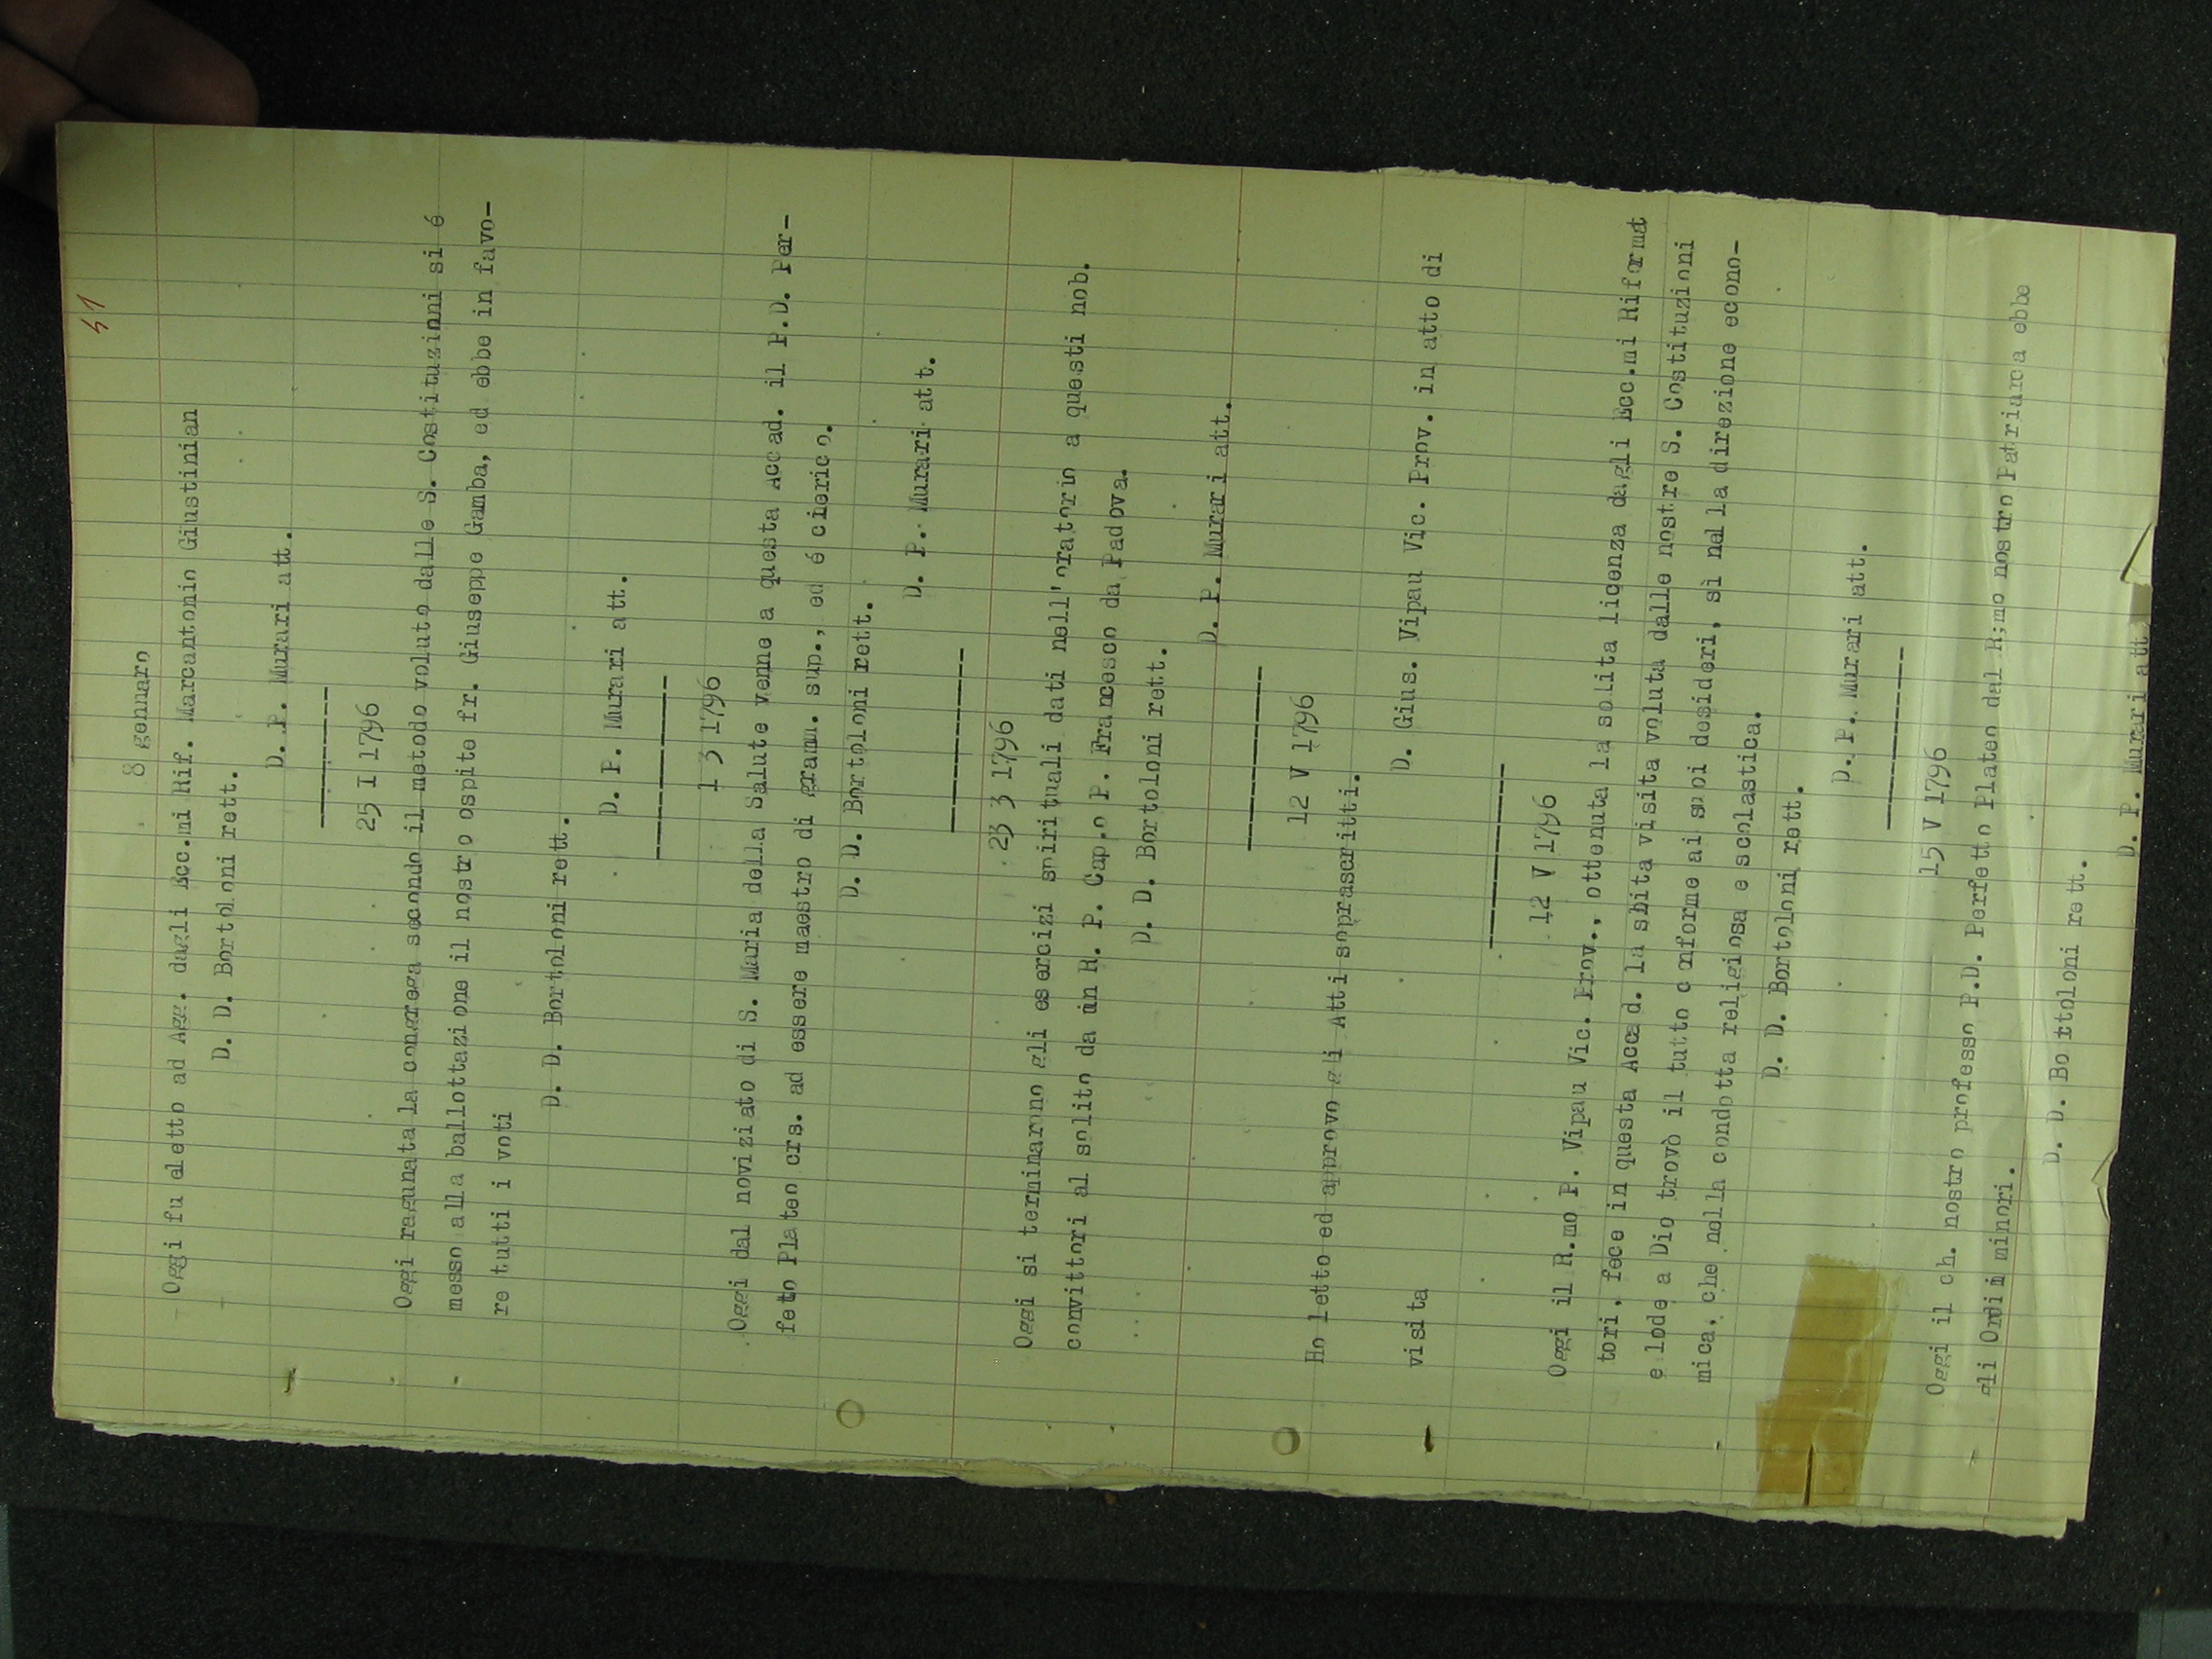 51
8 gennaro
Oggi fu eletto ad Agg. dagli Ecc.mi Rif. Marcantonio Giustinian
D. D. Bortoloni rett.
D. P. Murari att.
25 I 1796
Oggi ragunata la congrega secondo il metodo voluto dalle S. Costituzioni si é
messo alla ballottazione il nostro ospite fr. Giuseppe Gamba, ed ebbe in favo-
re tutti i voti
D. D. Bortoloni rett.
D. P. Murari att.
1 3 1796
Oggi dal noviziato di S. Maria della Salute venne a questa Accad. il P.D. Per-
feto Plateo crs. ad essere maestro di gramm. sup., ed é cierico.
D. D. Bortoloni rett.
D. P. Murari att.
23 3 1796
Oggi si terminarono gli esercizi spirituali dati nell'oratorio a questi nob.
convittori al solito da in R. P. Cap.o P. Francesco da Padova.
D. D. Bortoloni rett.
D. P. Murari att.
12 V 1796
Ho letto ed approvo gli Atti soprascritti.
D. Gius. Vipau Vic. Prov. in atto di
visita
12 V 1796
Oggi il R.mo P. Vipau Vic. Prov., ottenuta la solita licenza dagli Ecc.mi Riformat
tori, fece in questa Accad. la sbita visita voluta dalle nostre S. Costituzioni
e lode a Dio trovò il tutto conforme ai suoi desideri, sì nella direzione econo-
mica, che nella condotta religiosa e scolastica.
D. D. Bortoloni rett.
D. P. Murari att.
15 V 1796
Oggi il ch. nostro professo P.D. Perfetto Plateo dal R;mo nostro Patriarca ebbe
gli Ordini minori.
D. D. Bottoloni rett.
D. P. Murari att.